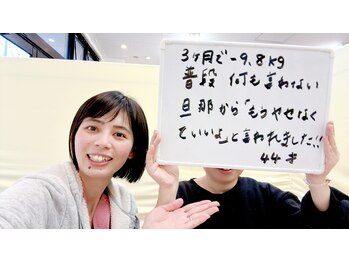 3ヶ月で-9.8kg
普段 何も言わない
旦那から「もうやせなく
ていいよ」と言われました!!
44才